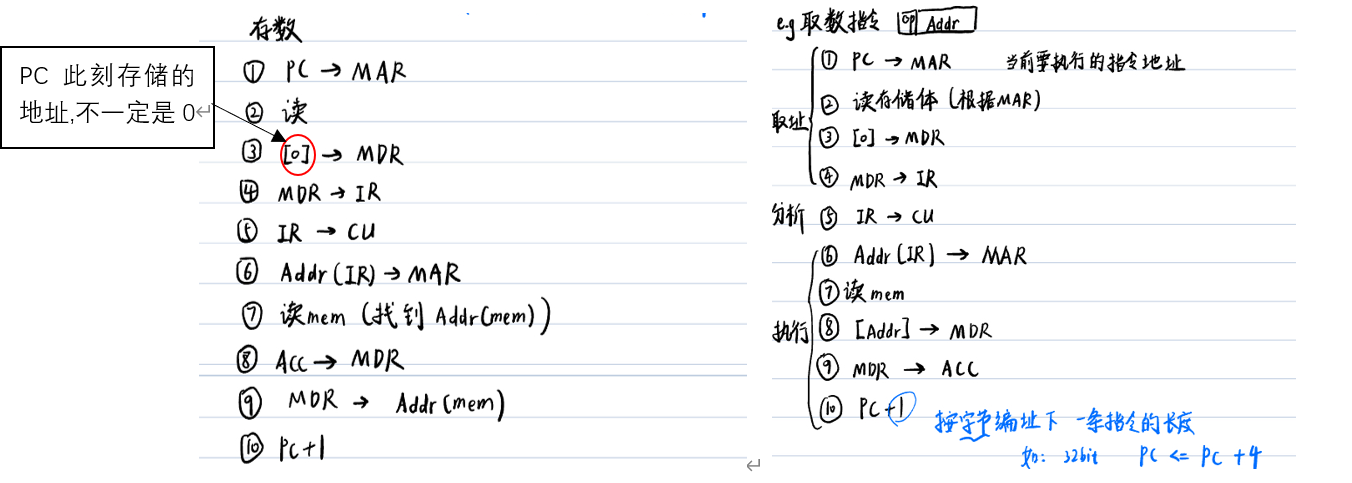 存数
PC 此刻存储的
地址,不一定是 0
① PC → MAR
② 读
③ [0] → MDR
④ MDR → IR
⑤ IR → CU
⑥ Addr(IR) → MAR
⑦ 读mem (找到 Addr(mem))
⑧ ACC → MDR
⑨ MDR → Addr(mem)
⑩ PC+1
e.g 取数指令 op Addr
取址
① PC → MAR 当前要执行的指令地址
② 读存储体 (根据MAR)
③ [0] → MDR
④ MDR → IR
分析 ⑤ IR → CU
执行
⑥ Addr(IR) → MAR
⑦ 读mem
⑧ [Addr] → MDR
⑨ MDR → ACC
⑩ PC+1
按字节编址下 一条指令的长度
如: 32bit PC <= PC +4